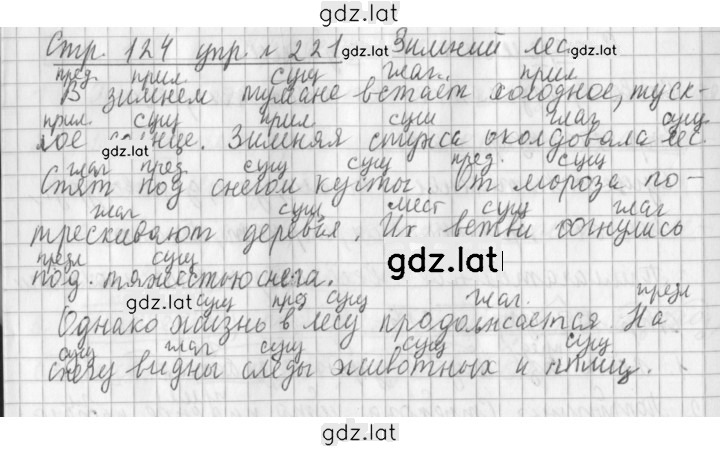 gdz.lat
Стр. 124 упр. № 221 gdz.lat Зимний лес.
пред. прил. сущ глаг. прил
В зимнем тумане встаёт холодное, туск-
прил. сущ прил сущ глаг сущ
лое gdz.lat нце. Зимняя стужа околдовала лес.
глаг пред. сущ сущ пред. сущ
Спят под снегом кусты. От мороза по-
глаг сущ мест сущ глаг
трескивают деревья. Их ветви согнулись
предл сущ gdz.lat
под тяжестью снега.
gdz.lat сущ пред сущ глаг. предл
Однако жизнь в лесу продолжается. На
сущ глаг сущ сущ сущ
снегу видны следы животных и птиц.
gdz.lat